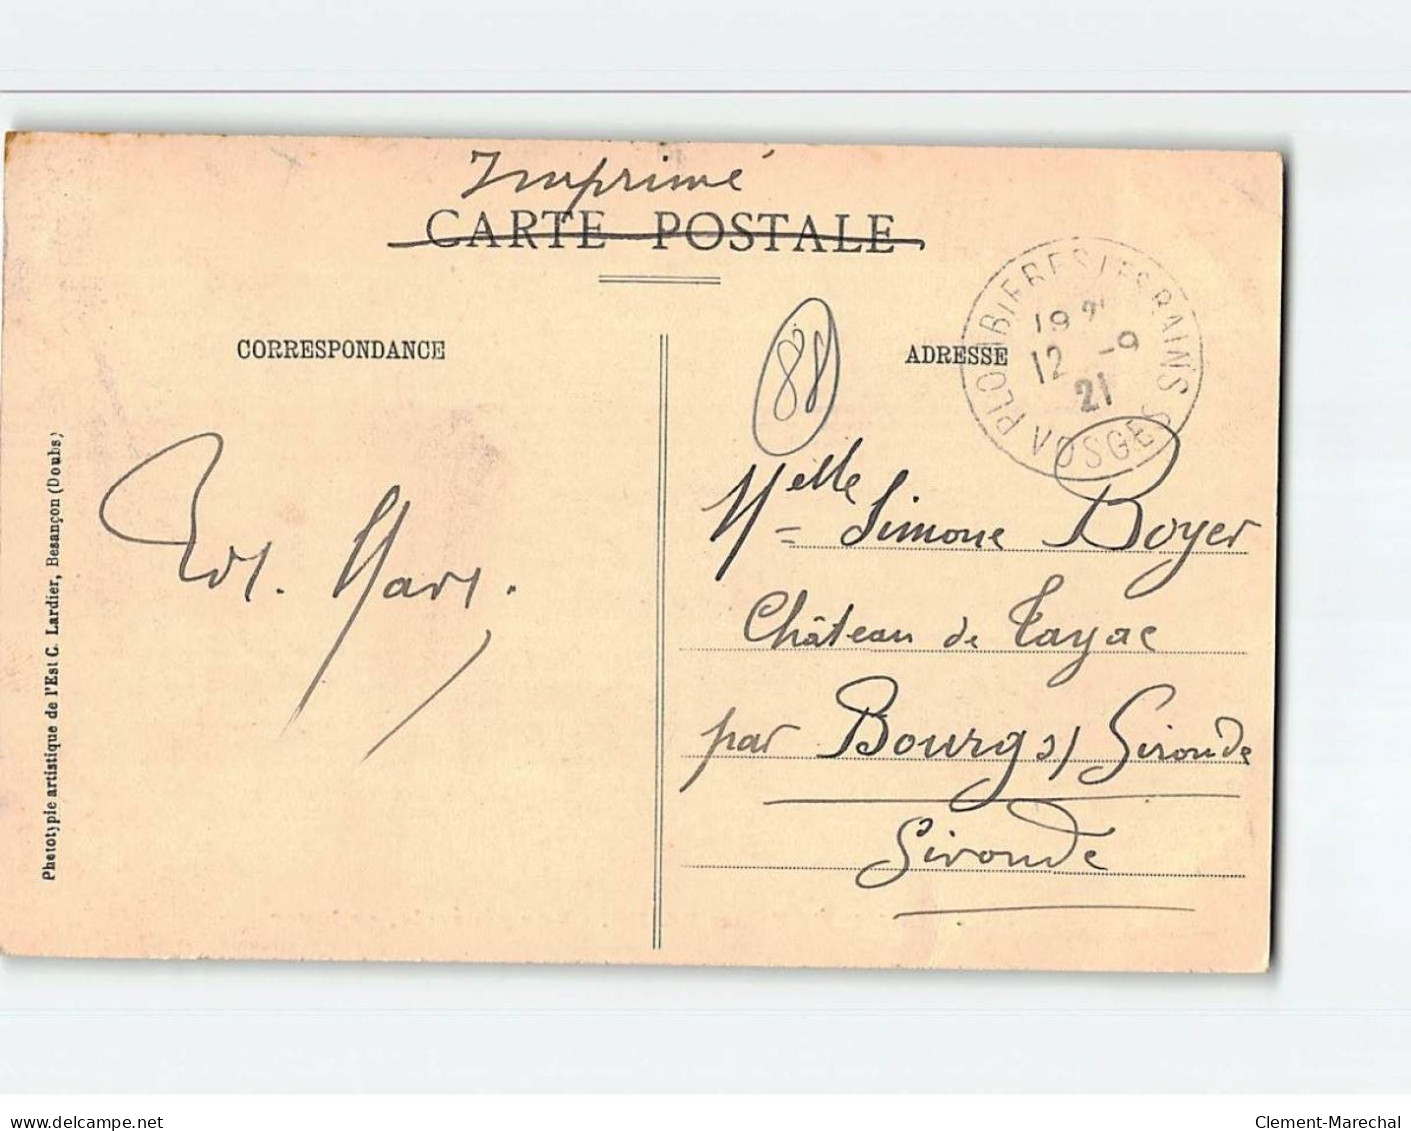 Imprimé
CARTE POSTALE
CORRESPONDANCE
ADRESSE
PLOMBIERES LES BAINS
VOSGES
12 -9
21
88
Melle Simone Boyer
Château de Tayac
par Bourg s/ Gironde
Gironde
Phototypie artistique de l'Est C. Lardier, Besançon (Doubs)
www.delcampe.net
Clement-Marechal